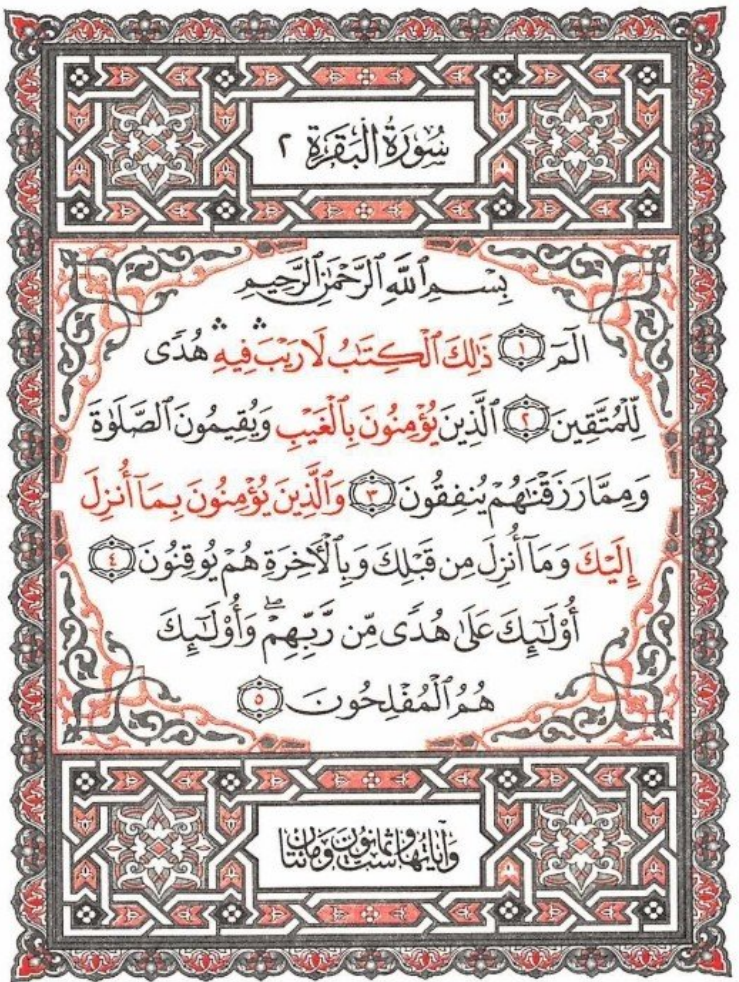 سُورَةُ الْبَقَرَةِ ٢
بِسْمِ ٱللَّهِ ٱلرَّحْمَٰنِ ٱلرَّحِيمِ
الٓمٓ ١ ذَٰلِكَ ٱلْكِتَٰبُ لَا رَيْبَ ۛ فِيهِ ۛ هُدًى
لِّلْمُتَّقِينَ ٢ ٱلَّذِينَ يُؤْمِنُونَ بِٱلْغَيْبِ وَيُقِيمُونَ ٱلصَّلَوٰةَ
وَمِمَّا رَزَقْنَٰهُمْ يُنفِقُونَ ٣ وَٱلَّذِينَ يُؤْمِنُونَ بِمَآ أُنزِلَ
إِلَيْكَ وَمَآ أُنزِلَ مِن قَبْلِكَ وَبِٱلْأَخِرَةِ هُمْ يُوقِنُونَ ٤
أُو۟لَٰٓئِكَ عَلَىٰ هُدًى مِّن رَّبِّهِمْ ۖ وَأُو۟لَٰٓئِكَ
هُمُ ٱلْمُفْلِحُونَ ٥
وَآيَاتُهَا سِتٌّ وَثَمَانُونَ وَمِائَتَانِ